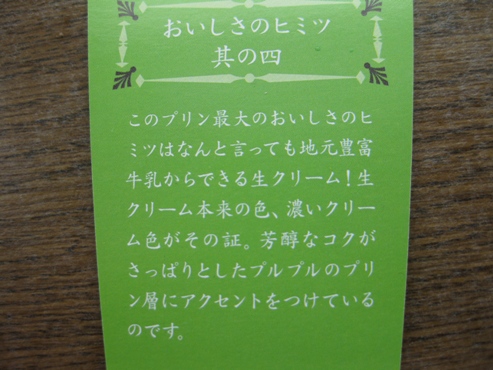 おいしさのヒミツ
其の四
このプリン最大のおいしさのヒ
ミツはなんと言っても地元豊富
牛乳からできる生クリーム！生
クリーム本来の色、濃いクリー
ム色がその証。芳醇なコクが
さっぱりとしたプルプルのプリ
ン層にアクセントをつけている
のです。